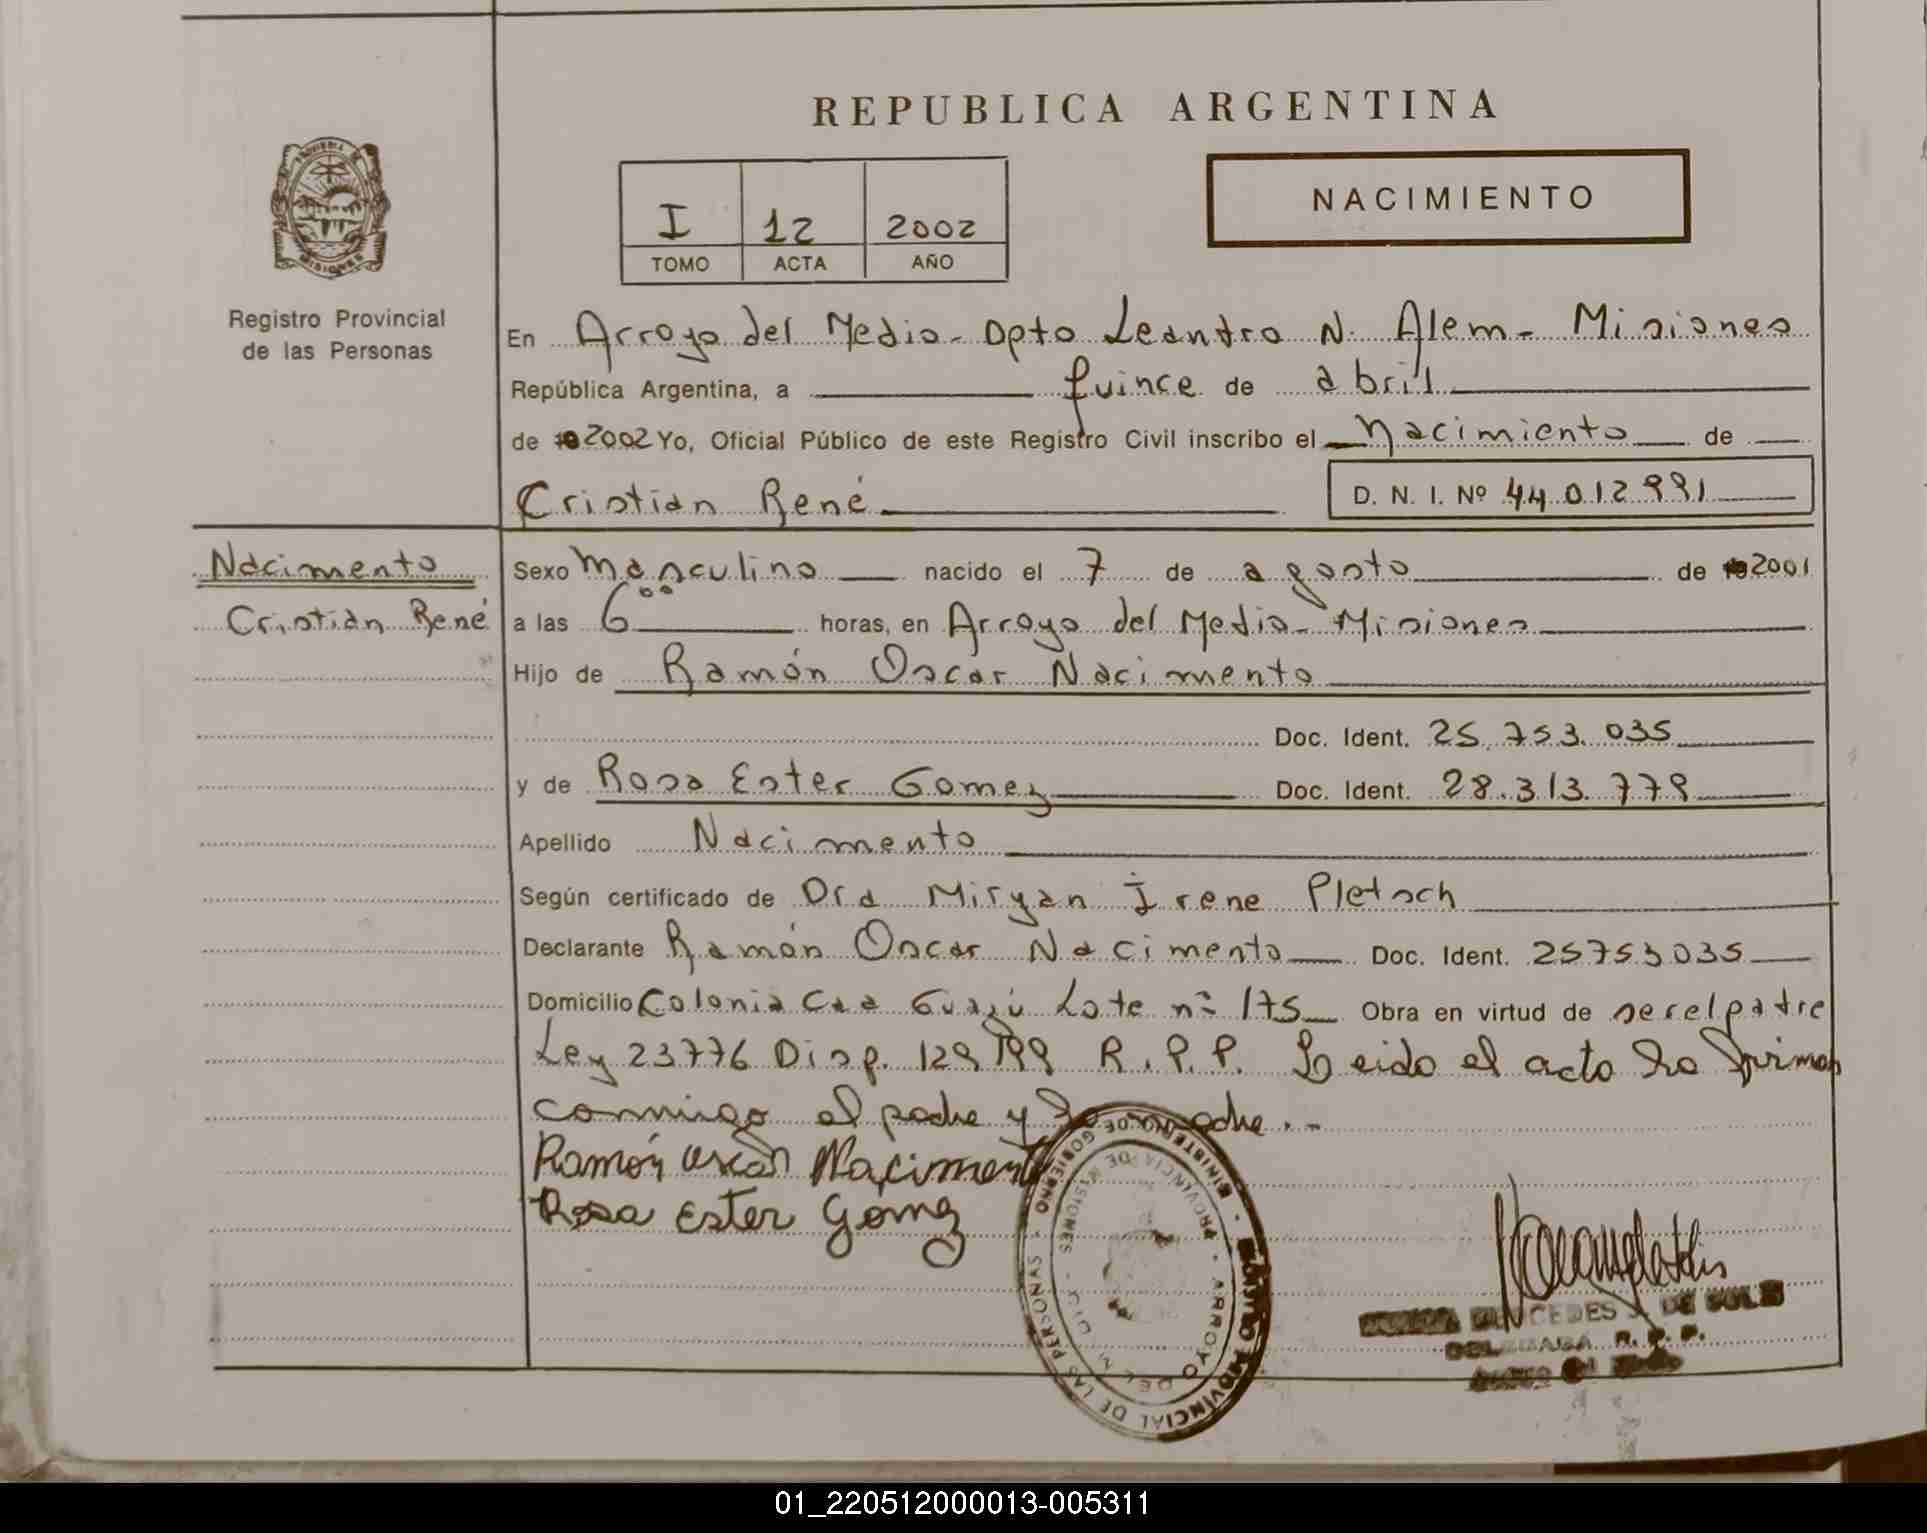 REPUBLICA ARGENTINA
NACIMIENTO
I 12 2002
TOMO ACTA AÑO
MISIONES
Registro Provincial
de las Personas
En Arroyo del Medio - Dpto Leandro N. Alem - Misiones
República Argentina, a quince de abril
de 2002 Yo, Oficial Público de este Registro Civil inscribo el Nacimiento de
Cristian René D. N. I. Nº 44.012.991
Nacimento
Cristian René
Sexo Masculino nacido el 7 de agosto de 2001
a las 6°° horas, en Arroyo del Medio - Misiones
Hijo de Ramón Oscar Nacimento
Doc. Ident. 25.753.035
y de Rosa Ester Gomez Doc. Ident. 28.313.779
Apellido Nacimento
Según certificado de Dra Miryan Irene Pletsch
Declarante Ramón Oscar Nacimento Doc. Ident. 25753035
Domicilio Colonia Caa Guazú Lote nº 175 Obra en virtud de ser el padre
Ley 23776 Disp. 129/99 R.P.P. Leido el acta la firman
conmigo el padre y la madre.-
Ramón Oscar Nacimento
Rosa Ester Gomez
MINISTERIO DE GOBIERNO - REGISTRO PROVINCIAL DE LAS PERSONAS
PROVINCIA DE MISIONES - ARROYO DEL MEDIO
MERCEDES J. DE
DELEGADA R. P. P.
01_220512000013-005311